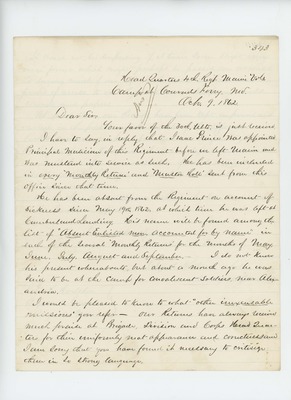 Head Quarters 4th Regt Maine Vols
Camp at Conrads Ferry, Md.
Oct. 9. 1862
Dear Sir:
Your favor of the 30th, Ulto. is just received
I have to say, in reply, that Isaac Prince was appointed
Principal Musician of this Regiment before we left Maine and
was mustered into service as such. He has been included
in every "Monthly Return" and "Muster Roll" sent from this
office since that time.
He has been absent from the Regiment on account of
sickness since May 19th 1862. at which time he was left at
Cumberland Landing. His name will be found among the
list of "Absent Enlisted men accounted for by name" in
each of the several Monthly Returns for the months of May,
June, July, August and September. I do not know
his present whereabouts, but about a month ago he was
said to be at the Camp for Convalescent Soldiers, near Alex-
andria.
I would be pleased to know to what "other inexcusable
omissions" you refer — Our Returns have always received
much praise at Brigade, Division and Corps Head Quar-
ters for their uniformly neat appearance and correctness and
I am sorry that you have found it necessary to criticize
them in so strong language.